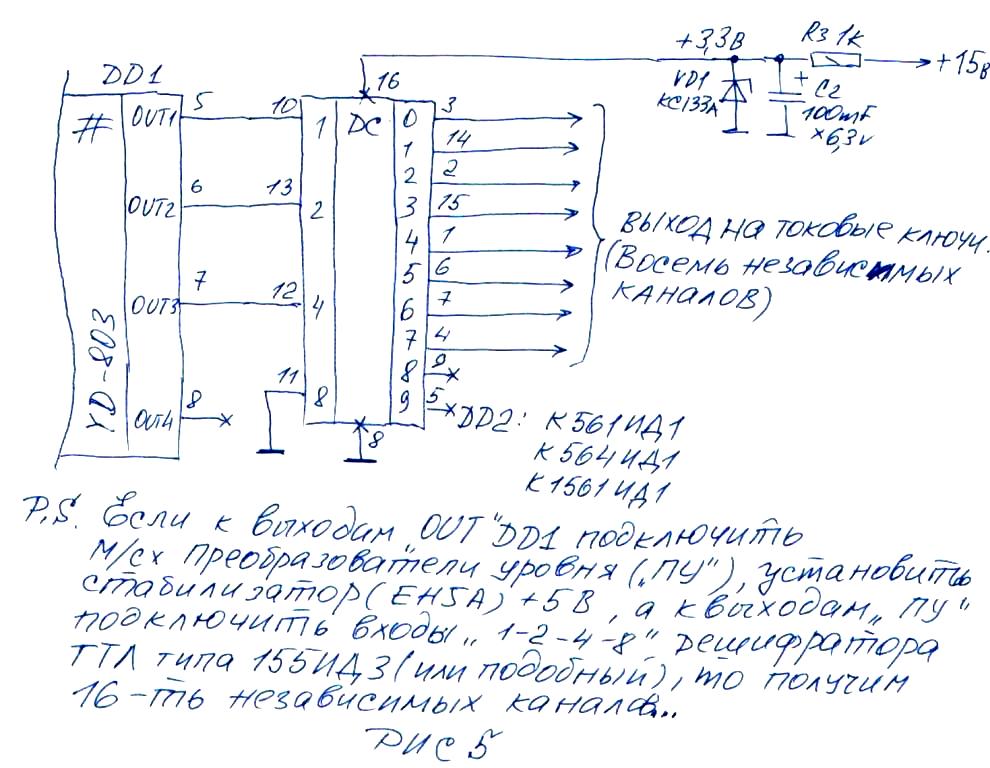 +3,3В
R3 1К
+15В
VD1
КС133А
+
С2
100mF
×6,3v
16
DD1
#
YD-803
OUT1
5
10
OUT2
6
13
OUT3
7
12
OUT4
8
11
1
2
4
8
DC
8
0
3
1
14
2
2
3
15
4
1
5
6
6
7
7
4
8
9
9
5
ВЫХОД НА ТОКОВЫЕ КЛЮЧИ.
(Восемь независимых
каналов)
DD2: К561ИД1
К564ИД1
К1561ИД1
P.S. Если к выходам „OUT" DD1 подключить
м/сх преобразователи уровня („ПУ"), установить
стабилизатор (ЕН5А) +5В, а к выходам „ПУ"
подключить входы „1-2-4-8" дешифратора
ТТЛ типа 155ИД3 (или подобный), то получим
16-ть независимых каналов...
РИС 5